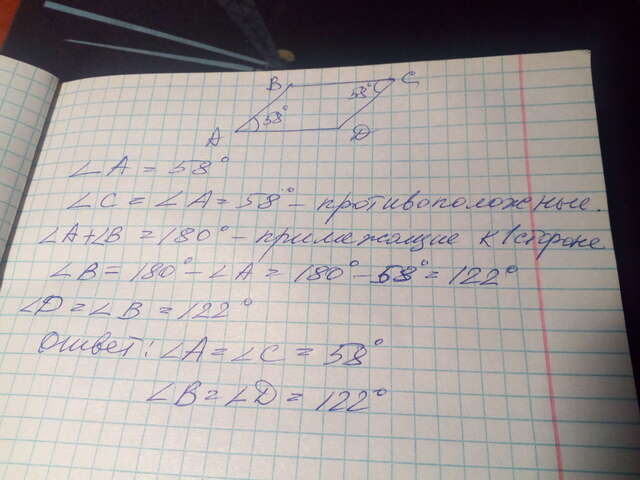 B C
58°
A 58° D
∠A = 58°
∠C = ∠A = 58° – противоположные.
∠A+∠B = 180° – прилежащие к 1 стороне
∠B = 180° – ∠A = 180° – 58° = 122°
∠D = ∠B = 122°
Ответ: ∠A = ∠C = 58°
∠B = ∠D = 122°